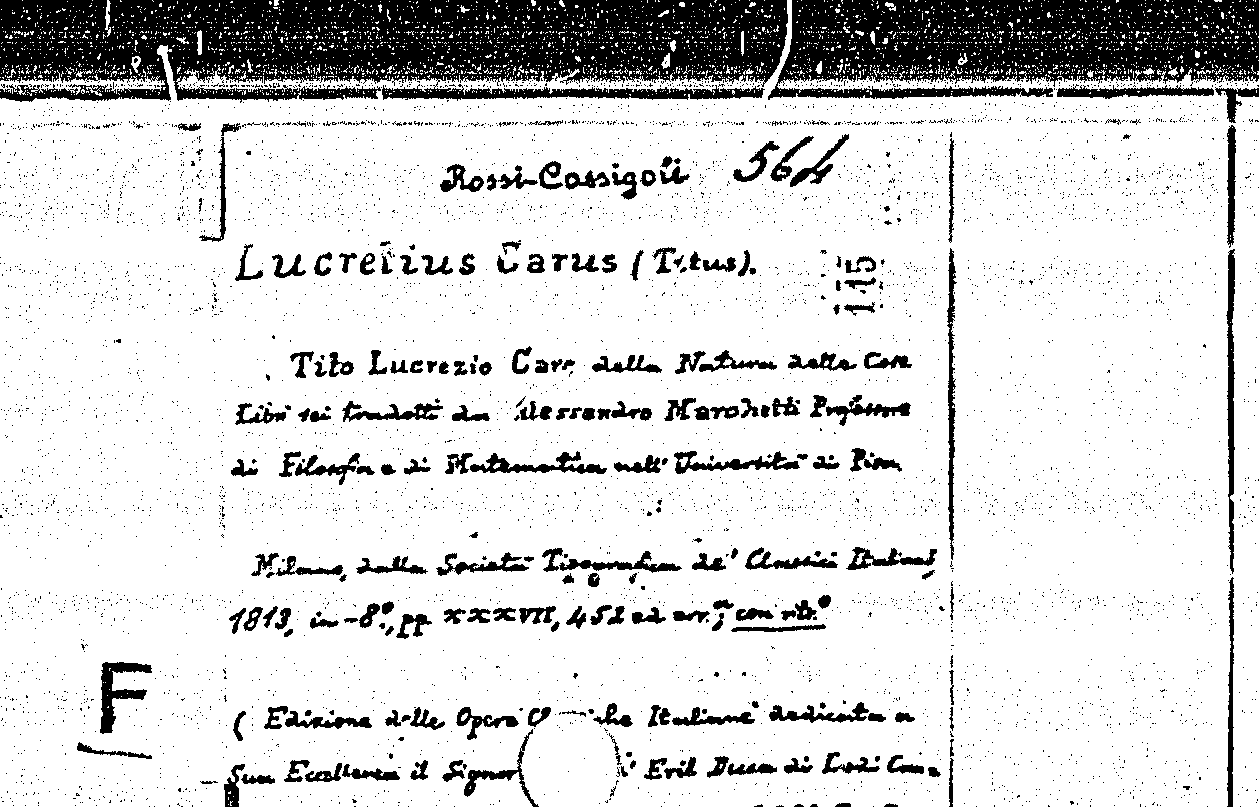 Rossi-Cassigoli 564
Lucretius Carus (Titus).
115
Tito Lucrezio Caro della Natura delle Cose
Libri sei tradotti da Alessandro Marchetti Professore
di Filosofia e di Matematica nell' Università di Pisa
Milano, dalla Società Tipografica de' Classici Italiani,
1813, in-8º, pp XXXVII, 452 ad err.ª, con ritr.º
F
( Edizione delle Opere Italiane dedicata a
Sua Eccellenza il Signor Eril Duca di Lodi